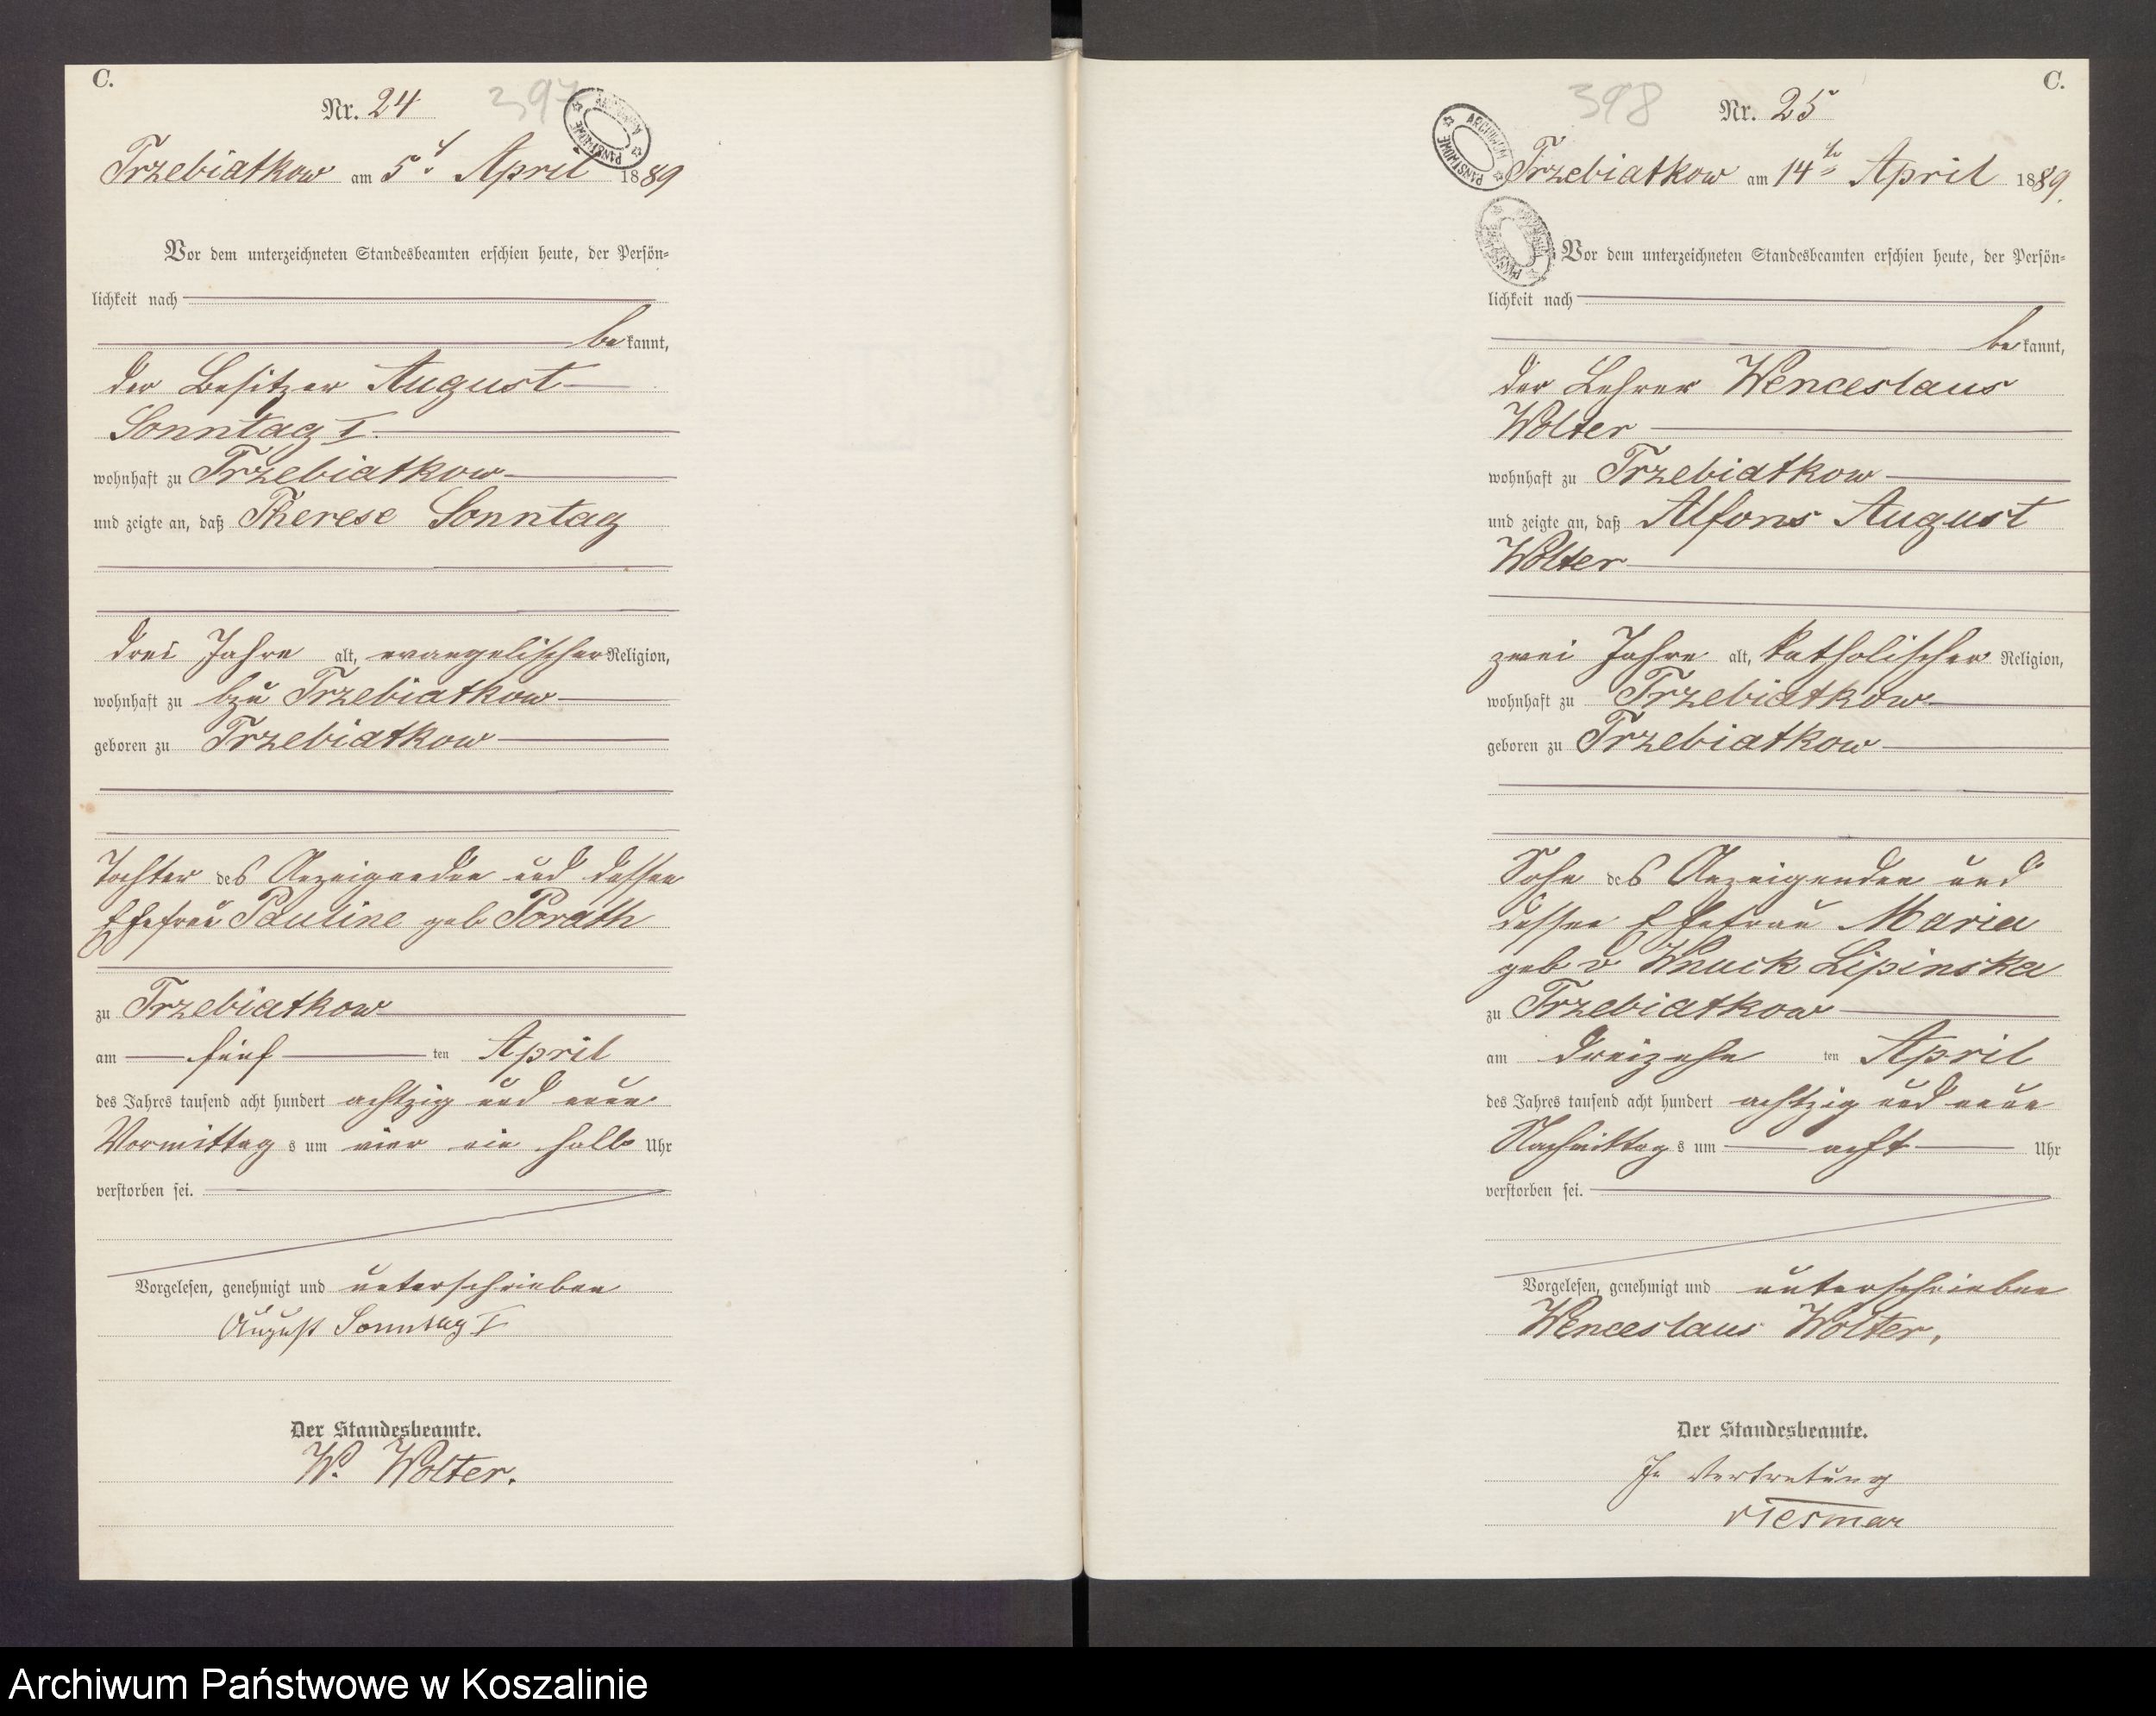 C.
Nr. 24
397
Trzebiatkow am 5t April 1889
Vor dem unterzeichneten Standesbeamten erschien heute, der Persön-
lichkeit nach
be kannt,
der Besitzer August
Sonntag I.
wohnhaft zu Trzebiatkow
und zeigte an, daß Therese Sonntag
drei Jahre alt, evangelischer Religion,
wohnhaft zu bzu Trzebiatkow
geboren zu Trzebiatkow
Tochter des Anzeigenden und dessen
Ehefrau Pauline geb Porath
zu Trzebiatkow
am fünf ten April
des Jahres tausend acht hundert achtzig und neun
Vormittag s um vier ein halb Uhr
verstorben sei.
Vorgelesen, genehmigt und unterschrieben
August Sonntag I
Der Standesbeamte.
W. Wolter.
C.
398
Nr. 25
ARCHIWUM PAŃSTWOWE
Trzebiatkow am 14te April 1889.
Vor dem unterzeichneten Standesbeamten erschien heute, der Persön-
lichkeit nach
be kannt,
der Lehrer Wenceslaus
Wolter
wohnhaft zu Trzebiatkow
und zeigte an, daß Alfons August
Wolter
zwei Jahre alt, katholischer Religion,
wohnhaft zu Trzebiatkow
geboren zu Trzebiatkow
Sohn des Anzeigenden und
dessen Ehefrau Maria
geb v Wnuck Lipinska
zu Trzebiatkow
am dreizehn ten April
des Jahres tausend acht hundert achtzig und neun
Nachmittag s um acht Uhr
verstorben sei.
Vorgelesen, genehmigt und unterschrieben
Wenceslaus Wolter,
Der Standesbeamte.
In Vertretung
Archiwum Państwowe w Koszalinie